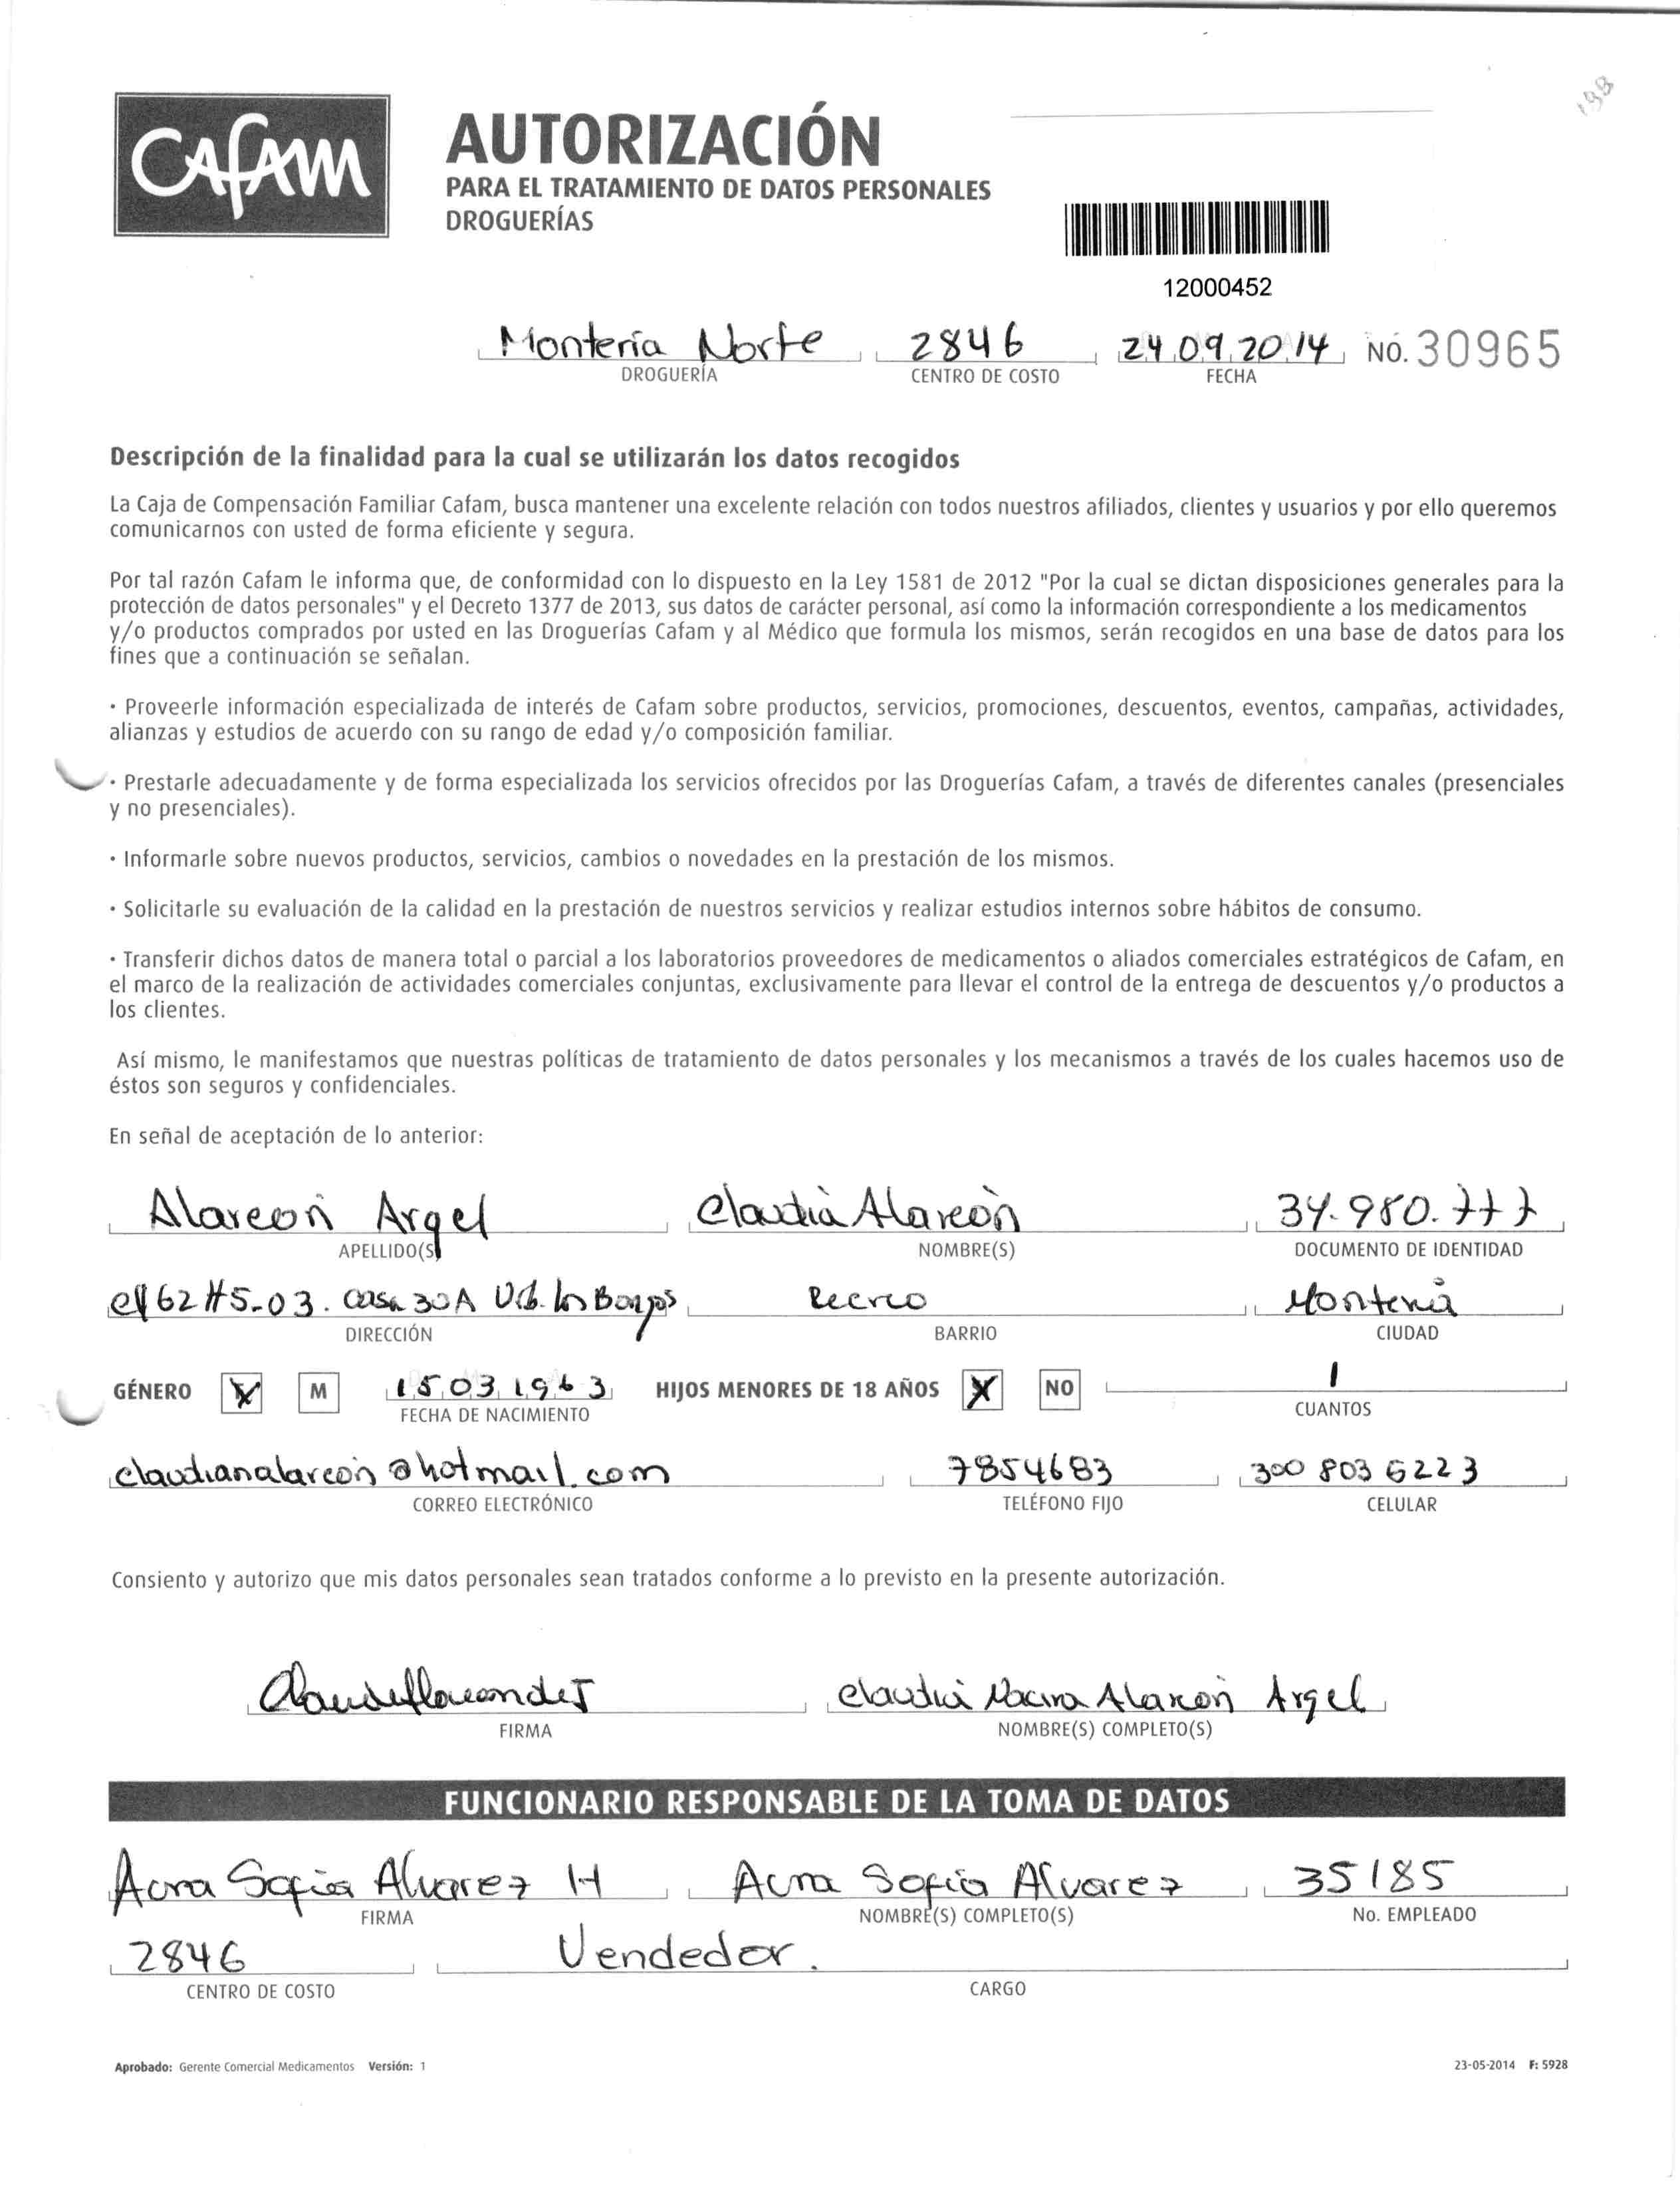 198
Cafam
AUTORIZACIÓN
PARA EL TRATAMIENTO DE DATOS PERSONALES
DROGUERÍAS
12000452
Montería Norte 2846 24 09 2014 NO. 30965
DROGUERÍA CENTRO DE COSTO FECHA
Descripción de la finalidad para la cual se utilizarán los datos recogidos
La Caja de Compensación Familiar Cafam, busca mantener una excelente relación con todos nuestros afiliados, clientes y usuarios y por ello queremos
comunicarnos con usted de forma eficiente y segura.
Por tal razón Cafam le informa que, de conformidad con lo dispuesto en la Ley 1581 de 2012 "Por la cual se dictan disposiciones generales para la
protección de datos personales" y el Decreto 1377 de 2013, sus datos de carácter personal, así como la información correspondiente a los medicamentos
y/o productos comprados por usted en las Droguerías Cafam y al Médico que formula los mismos, serán recogidos en una base de datos para los
fines que a continuación se señalan.
· Proveerle información especializada de interés de Cafam sobre productos, servicios, promociones, descuentos, eventos, campañas, actividades,
alianzas y estudios de acuerdo con su rango de edad y/o composición familiar.
· Prestarle adecuadamente y de forma especializada los servicios ofrecidos por las Droguerías Cafam, a través de diferentes canales (presenciales
y no presenciales).
· Informarle sobre nuevos productos, servicios, cambios o novedades en la prestación de los mismos.
· Solicitarle su evaluación de la calidad en la prestación de nuestros servicios y realizar estudios internos sobre hábitos de consumo.
· Transferir dichos datos de manera total o parcial a los laboratorios proveedores de medicamentos o aliados comerciales estratégicos de Cafam, en
el marco de la realización de actividades comerciales conjuntas, exclusivamente para llevar el control de la entrega de descuentos y/o productos a
los clientes.
Así mismo, le manifestamos que nuestras políticas de tratamiento de datos personales y los mecanismos a través de los cuales hacemos uso de
éstos son seguros y confidenciales.
En señal de aceptación de lo anterior:
Alarcón Argel Claudia Alarcón 34.980.777
APELLIDO(S) NOMBRE(S) DOCUMENTO DE IDENTIDAD
cll 62 #5-03. Casa 30A Urb. los Bongos Recreo Montería
DIRECCIÓN BARRIO CIUDAD
GÉNERO X M 15 03 1963 HIJOS MENORES DE 18 AÑOS X NO 1
FECHA DE NACIMIENTO CUANTOS
claudianalarcon@hotmail.com 7854683 300 803 6223
CORREO ELECTRÓNICO TELÉFONO FIJO CELULAR
Consiento y autorizo que mis datos personales sean tratados conforme a lo previsto en la presente autorización.
Claudia Alarcón Argel
FIRMA NOMBRE(S) COMPLETO(S)
FUNCIONARIO RESPONSABLE DE LA TOMA DE DATOS
Ana Sofia Alvarez H Ana Sofia Alvarez 35185
FIRMA NOMBRE(S) COMPLETO(S) No. EMPLEADO
2846 Vendedor.
CENTRO DE COSTO CARGO
Aprobado: Gerente Comercial Medicamentos Versión: 1 23-05-2014 F: 5928